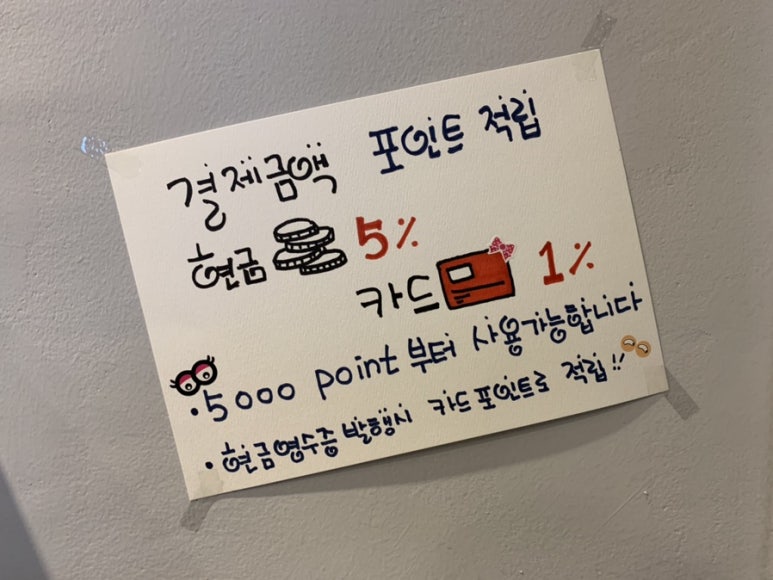 결제금액 포인트 적립
현금 5%
카드 1%
• 5000 point 부터 사용가능합니다
• 현금영수증 발행시 카드포인트로 적립!!